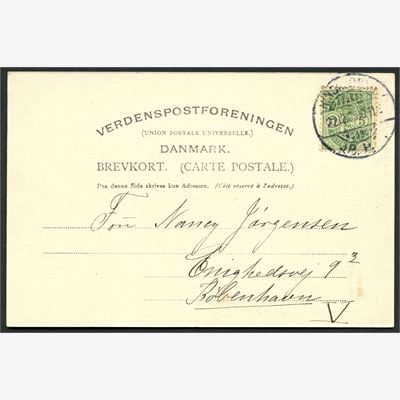 VERDENSPOSTFORENINGEN
(UNION POSTALE UNIVERSELLE.)
DANMARK.
BREVKORT. (CARTE POSTALE.)
Paa denne Side skrives kun Adressen. (Côté réservé à l'adresse.)
Frøn Nancy Jørgensen
Enighedsvej 9 3
København
V